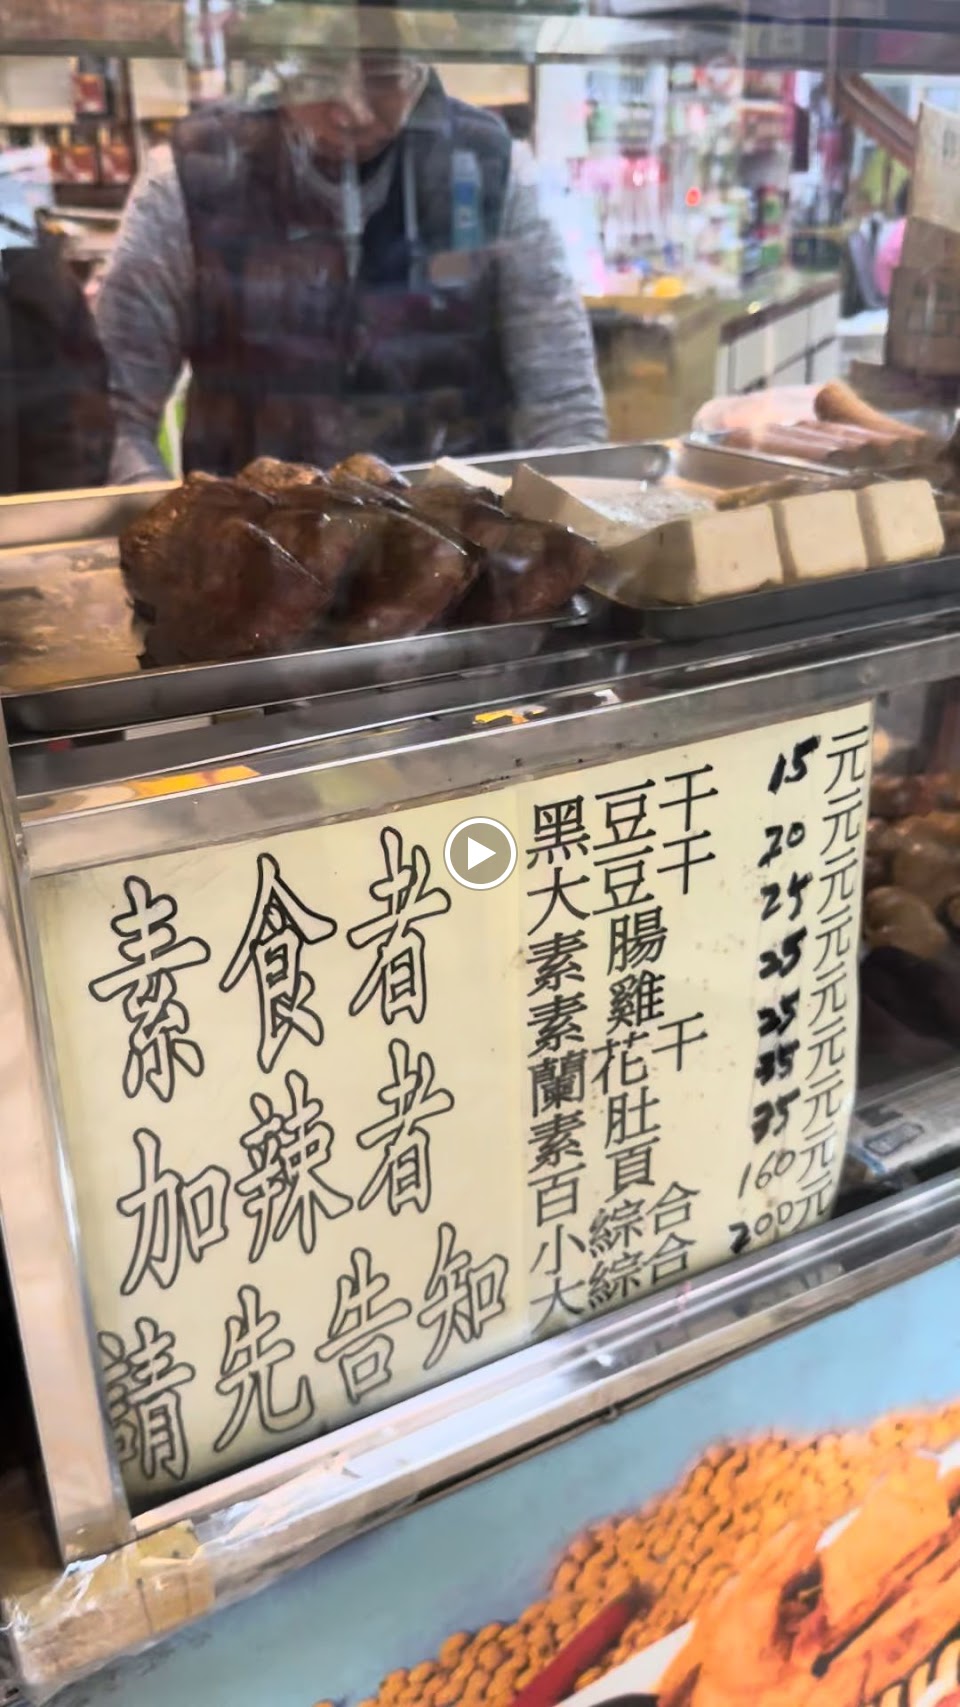 素食者
加辣者
請先告知
黑豆干 15元
大豆干 20元
素腸 25元
素雞 25元
蘭花干 25元
素肚 35元
百頁 35元
小綜合 160元
大綜合 200元